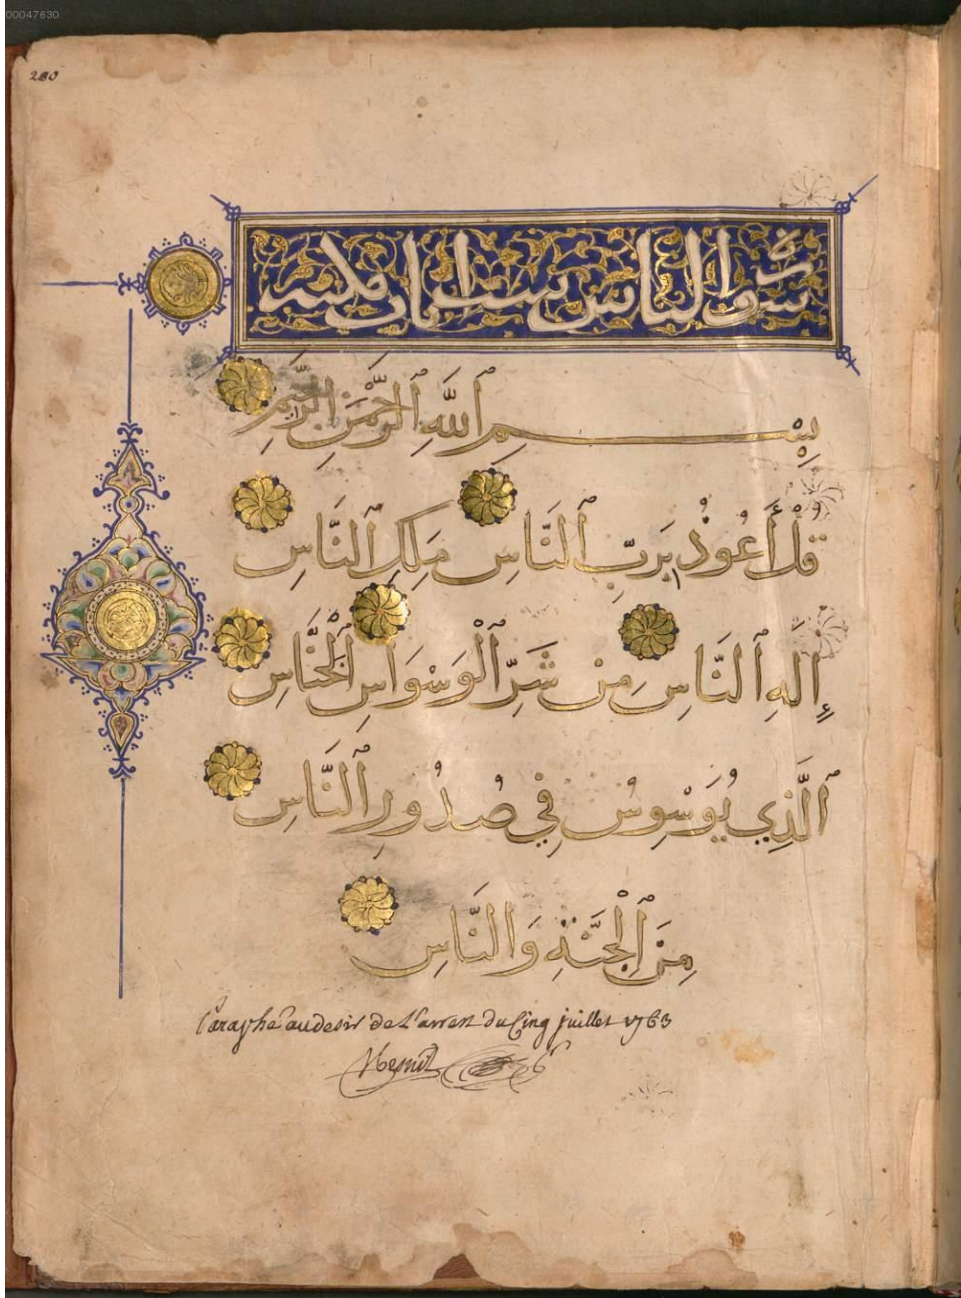 00047630
280
سورة الناس ست ايات مكية
بِسْمِ ٱللَّهِ ٱلرَّحْمَٰنِ ٱلرَّحِيمِ
قُلْ أَعُوذُ بِرَبِّ ٱلنَّاسِ مَلِكِ ٱلنَّاسِ
إِلَٰهِ ٱلنَّاسِ مِن شَرِّ ٱلْوَسْوَاسِ ٱلْخَنَّاسِ
ٱلَّذِي يُوَسْوِسُ فِي صُدُورِ ٱلنَّاسِ
مِنَ ٱلْجِنَّةِ وَالنَّاسِ
Paraphé au desir de L'arrest du Cinq juillet 1763
Mesnil